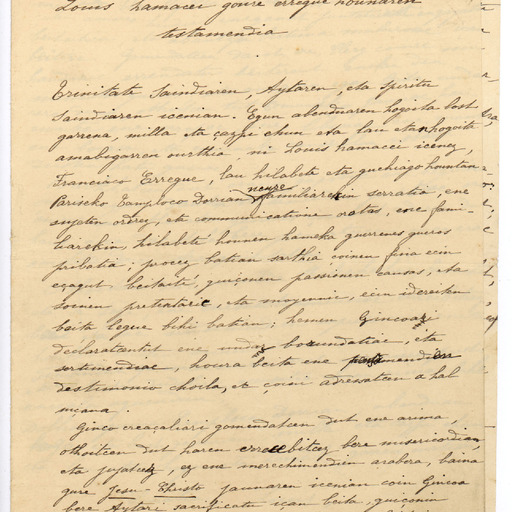 Louis hamacei goure erregue hounaren
testamendia
Trinitate Saindiaren, Aytaren, eta Spiritu
Saindiaren icenian. Egun abenduaren hogoita bost
garrena, milla eta çazpi ehun eta lau etan hogoita
amabigarren ourthia, ni Louis hamacei icenez,
Franciaco Erregue, lau hilabete eta guehiago hountan
Parisco Templeco Dorrian neure familiarekin serratia, ene
sujeten ordrez, eta communicatione orotas, ene fami-
liarekin, hilabete hounen hameka guerrenes gueros
pribatia: procez batian sarthia coinen fina ecin
eçagut beitaite, guiçonen passionen causas, eta
coinen pretextaric, eta moyennic, ecin idereiten
baita legue bihi batian: hemen Gincoari
declaratcentut ene undar borondatiac, eta
sentimendiac, houra beita ene
destimonio choila, et çoini adressatcen ahal
niçana.
Ginco creaçaliari gomendatcen dut ene arima,
othoitcen dut haren errecebitcez bere misericordian,
eta jujatcez, ez ene merechimendien arabera, baina
gure Jesu-Christo jaunaren icenian coin Gincoa
bere Aytari sacrificatu içan beita, guiçonin